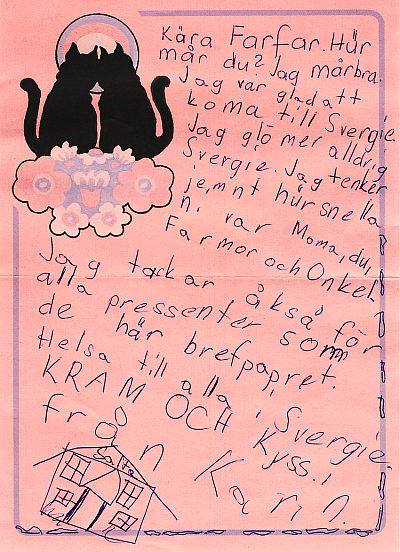 Kära Farfar. Hür
mår du? Jag mårbra.
Jag var glad att
koma till Svergie.
Jag glömer alldrig
Svergie. Jag tenker
jemnt hür snella
ni var Moma, du,
Farmor och Onkel.
Jag tackar åkså för
alla pressenter som
de här brefpapret.
Helsa till alla i Svergie.
KRAM OCH Kyss.
från Karin.